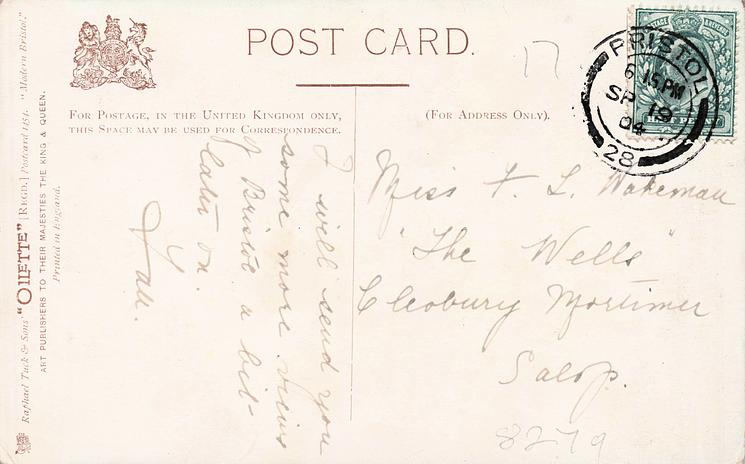 POST CARD.
17
FOR POSTAGE, IN THE UNITED KINGDOM ONLY,
THIS SPACE MAY BE USED FOR CORRESPONDENCE.
(FOR ADDRESS ONLY).
BRISTOL
6 15 PM
SP 19
04
28
POSTAGE & REVENUE
HALF PENNY
I will send you
some more views
of Bristol a bit
later on.
Miss F. L. Wakeman
"The Wells"
Cleobury Mortimer
Salop.
8279
Raphael Tuck & Sons' "OILETTE" [REGD.] Postcard 1154. "Modern Bristol."
ART PUBLISHERS TO THEIR MAJESTIES THE KING & QUEEN.
Printed in England.